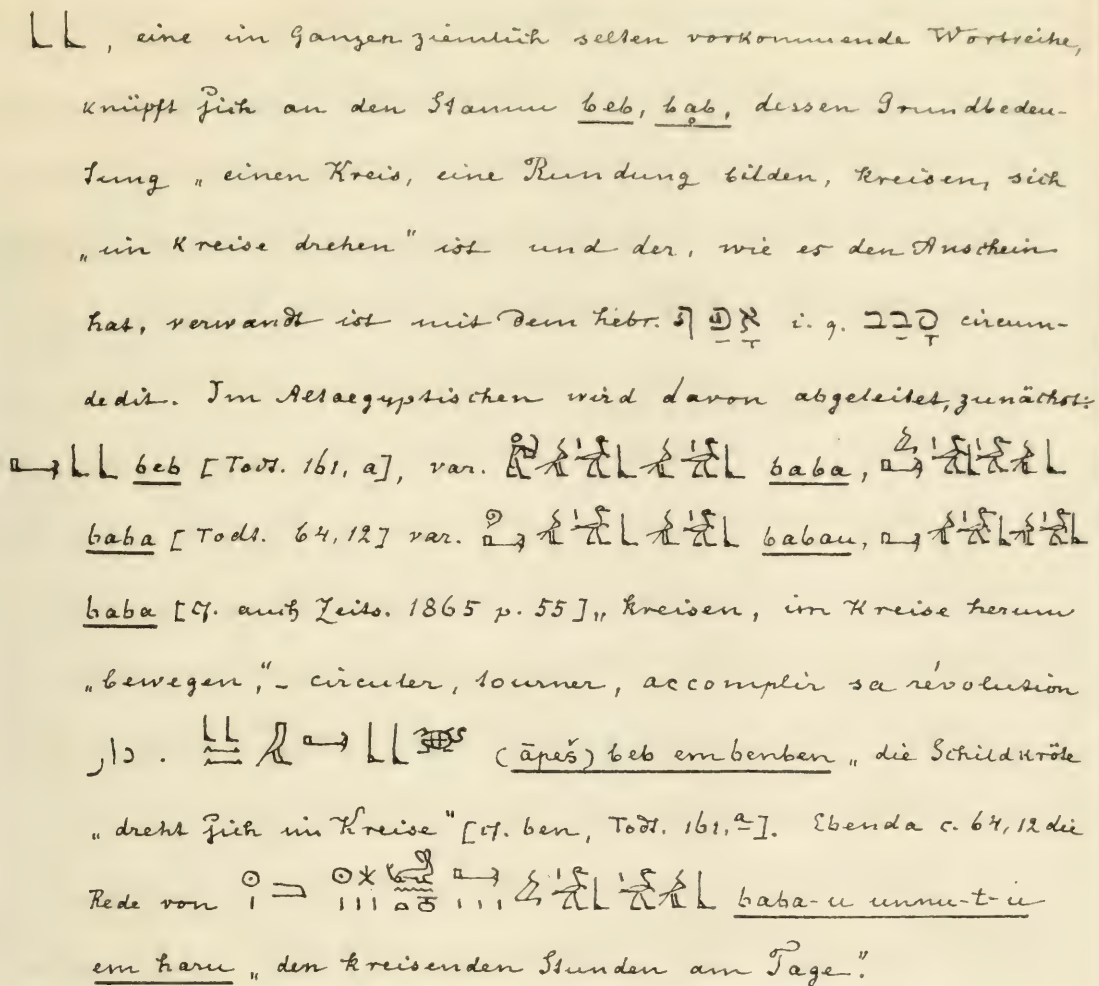 𓃀𓃀, eine im Ganzen ziemlich selten vorkommende Wortreihe,
knüpft sich an den Stamm beb, bạb, dessen Grundbedeu-
tung „einen Kreis, eine Rundung bilden, kreisen, sich
„im Kreise drehen" ist und der, wie es den Anschein
hat, verwandt ist mit dem hebr. אָפַף i. q. סָבַב circum-
dedit. Im Altaegyptischen wird davon abgeleitet, zunächst:
𓃀𓃀 beb [Todt. 161, a], var. baba,
baba [Todt. 64, 12] var. babau,
baba [cf. auch Zeits. 1865 p. 55] „kreisen, im Kreise herum
„bewegen", – circuler, tourner, accomplir sa révolution
دار. (āpeš) beb em benben „die Schildkröte
„dreht sich im Kreise" [cf. ben, Todt. 161, a]. Ebenda c. 64, 12 die
Rede von baba-u unnu-t-u
em haru „den kreisenden Stunden am Tage".